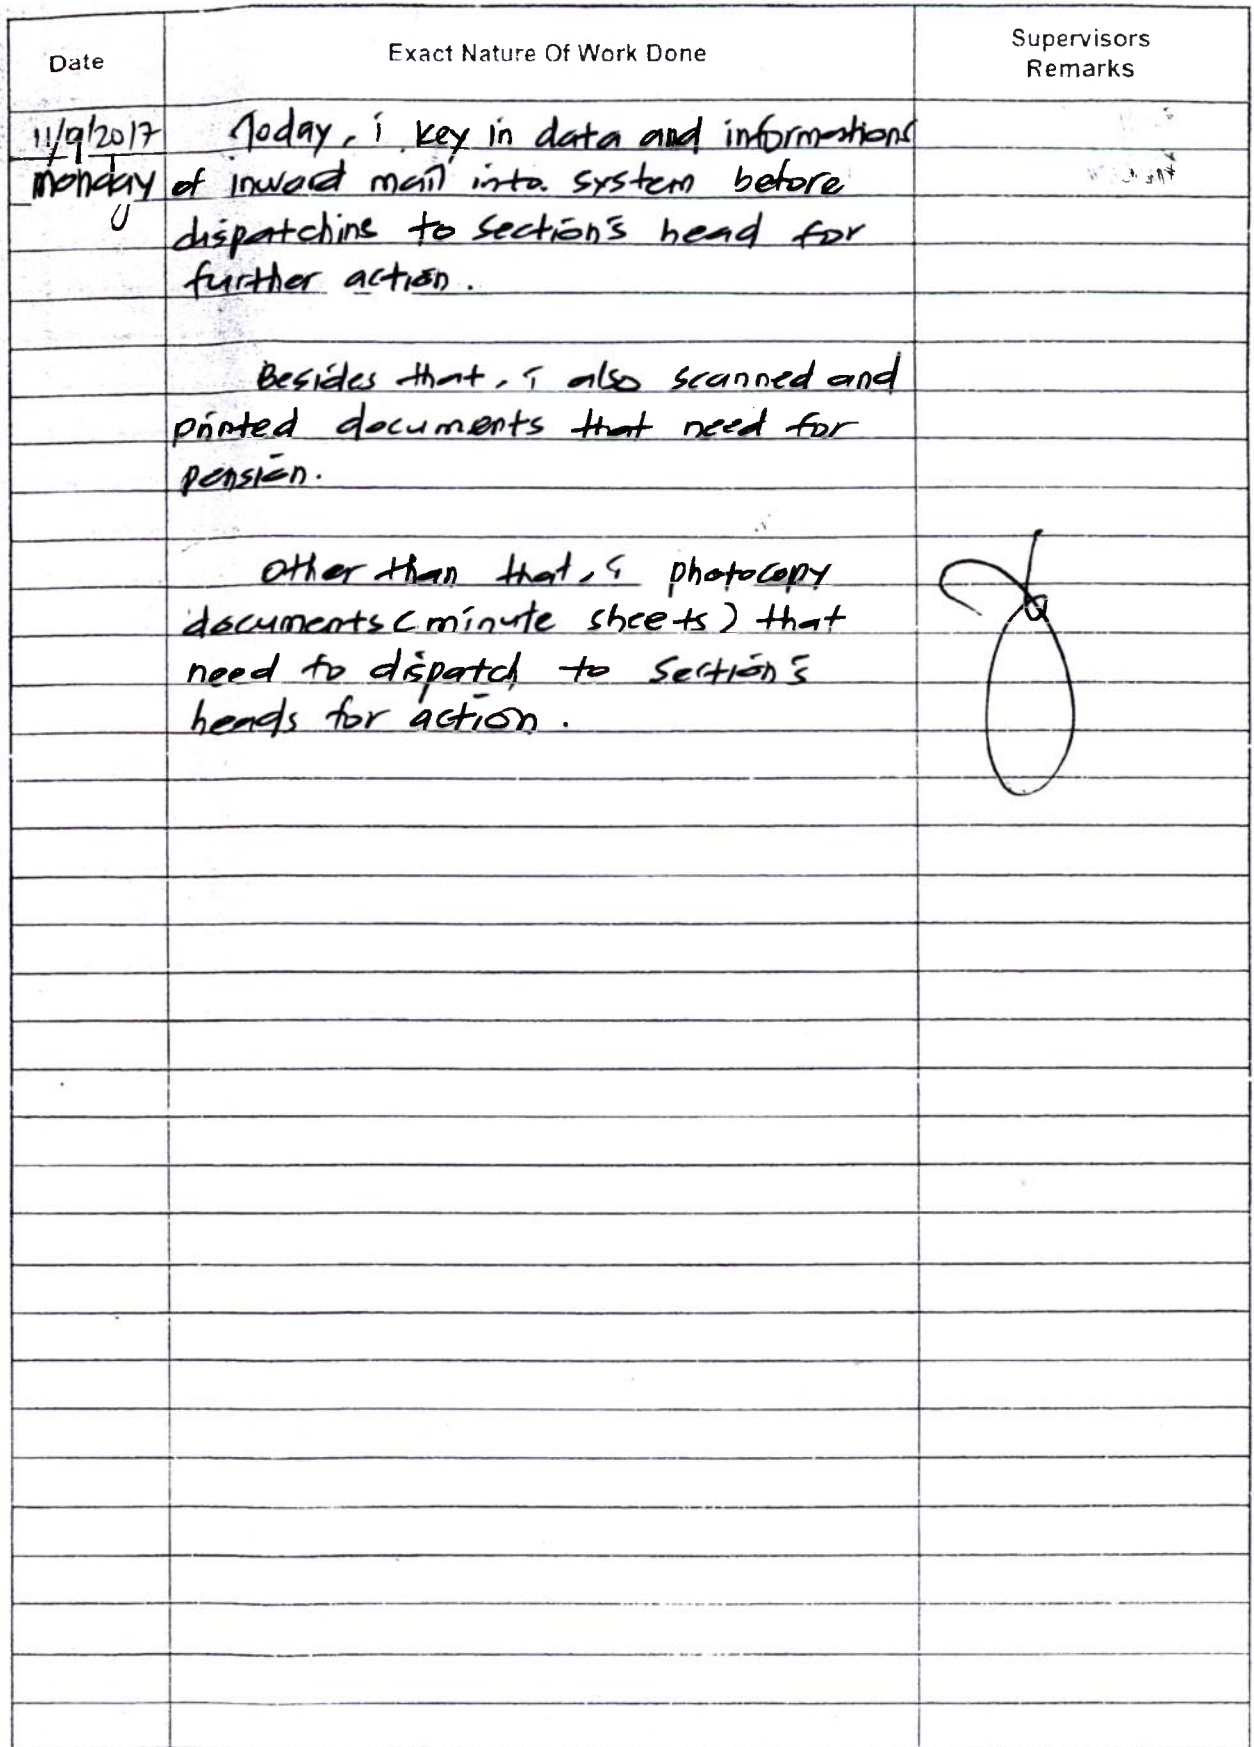 Date
Exact Nature Of Work Done
Supervisors
Remarks
11/9/2017
Monday
Today, i key in data and informations
of inward mail into system before
dispatching to section's head for
further action.
Besides that, i also scanned and
printed documents that need for
pension.
Other than that, i photocopy
documents (minute sheets) that
need to dispatch to section's
heads for action.